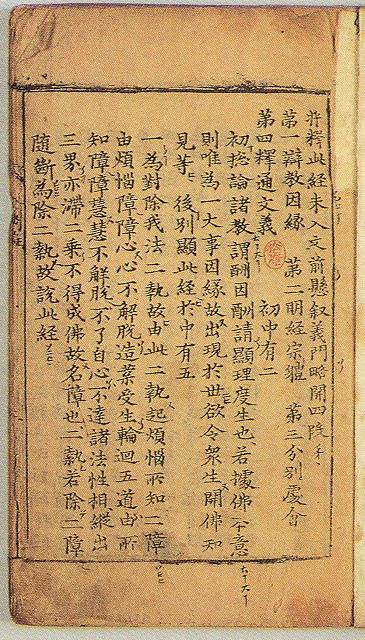 將釋此經未入文前懸叙義門略開四段
第一辯教因緣　第二明經宗體　第三分別處會
第四釋通文義　初中有二
初捴論諸教謂酬因酬請顯理度生也若據佛本意
則唯為一大事因緣故出現於世欲令衆生開佛知
見等　後別顯此經於中有五
一為對除我法二執故由此二執起煩惱所知二障
由煩惱障障心心不解脫造業受生輪迴五道由所
知障障慧慧不解脫不了自心不達諸法性相縱出
三界亦滯二乘不得成佛故名障也二執若除二障
隨斷為除二執故說此經